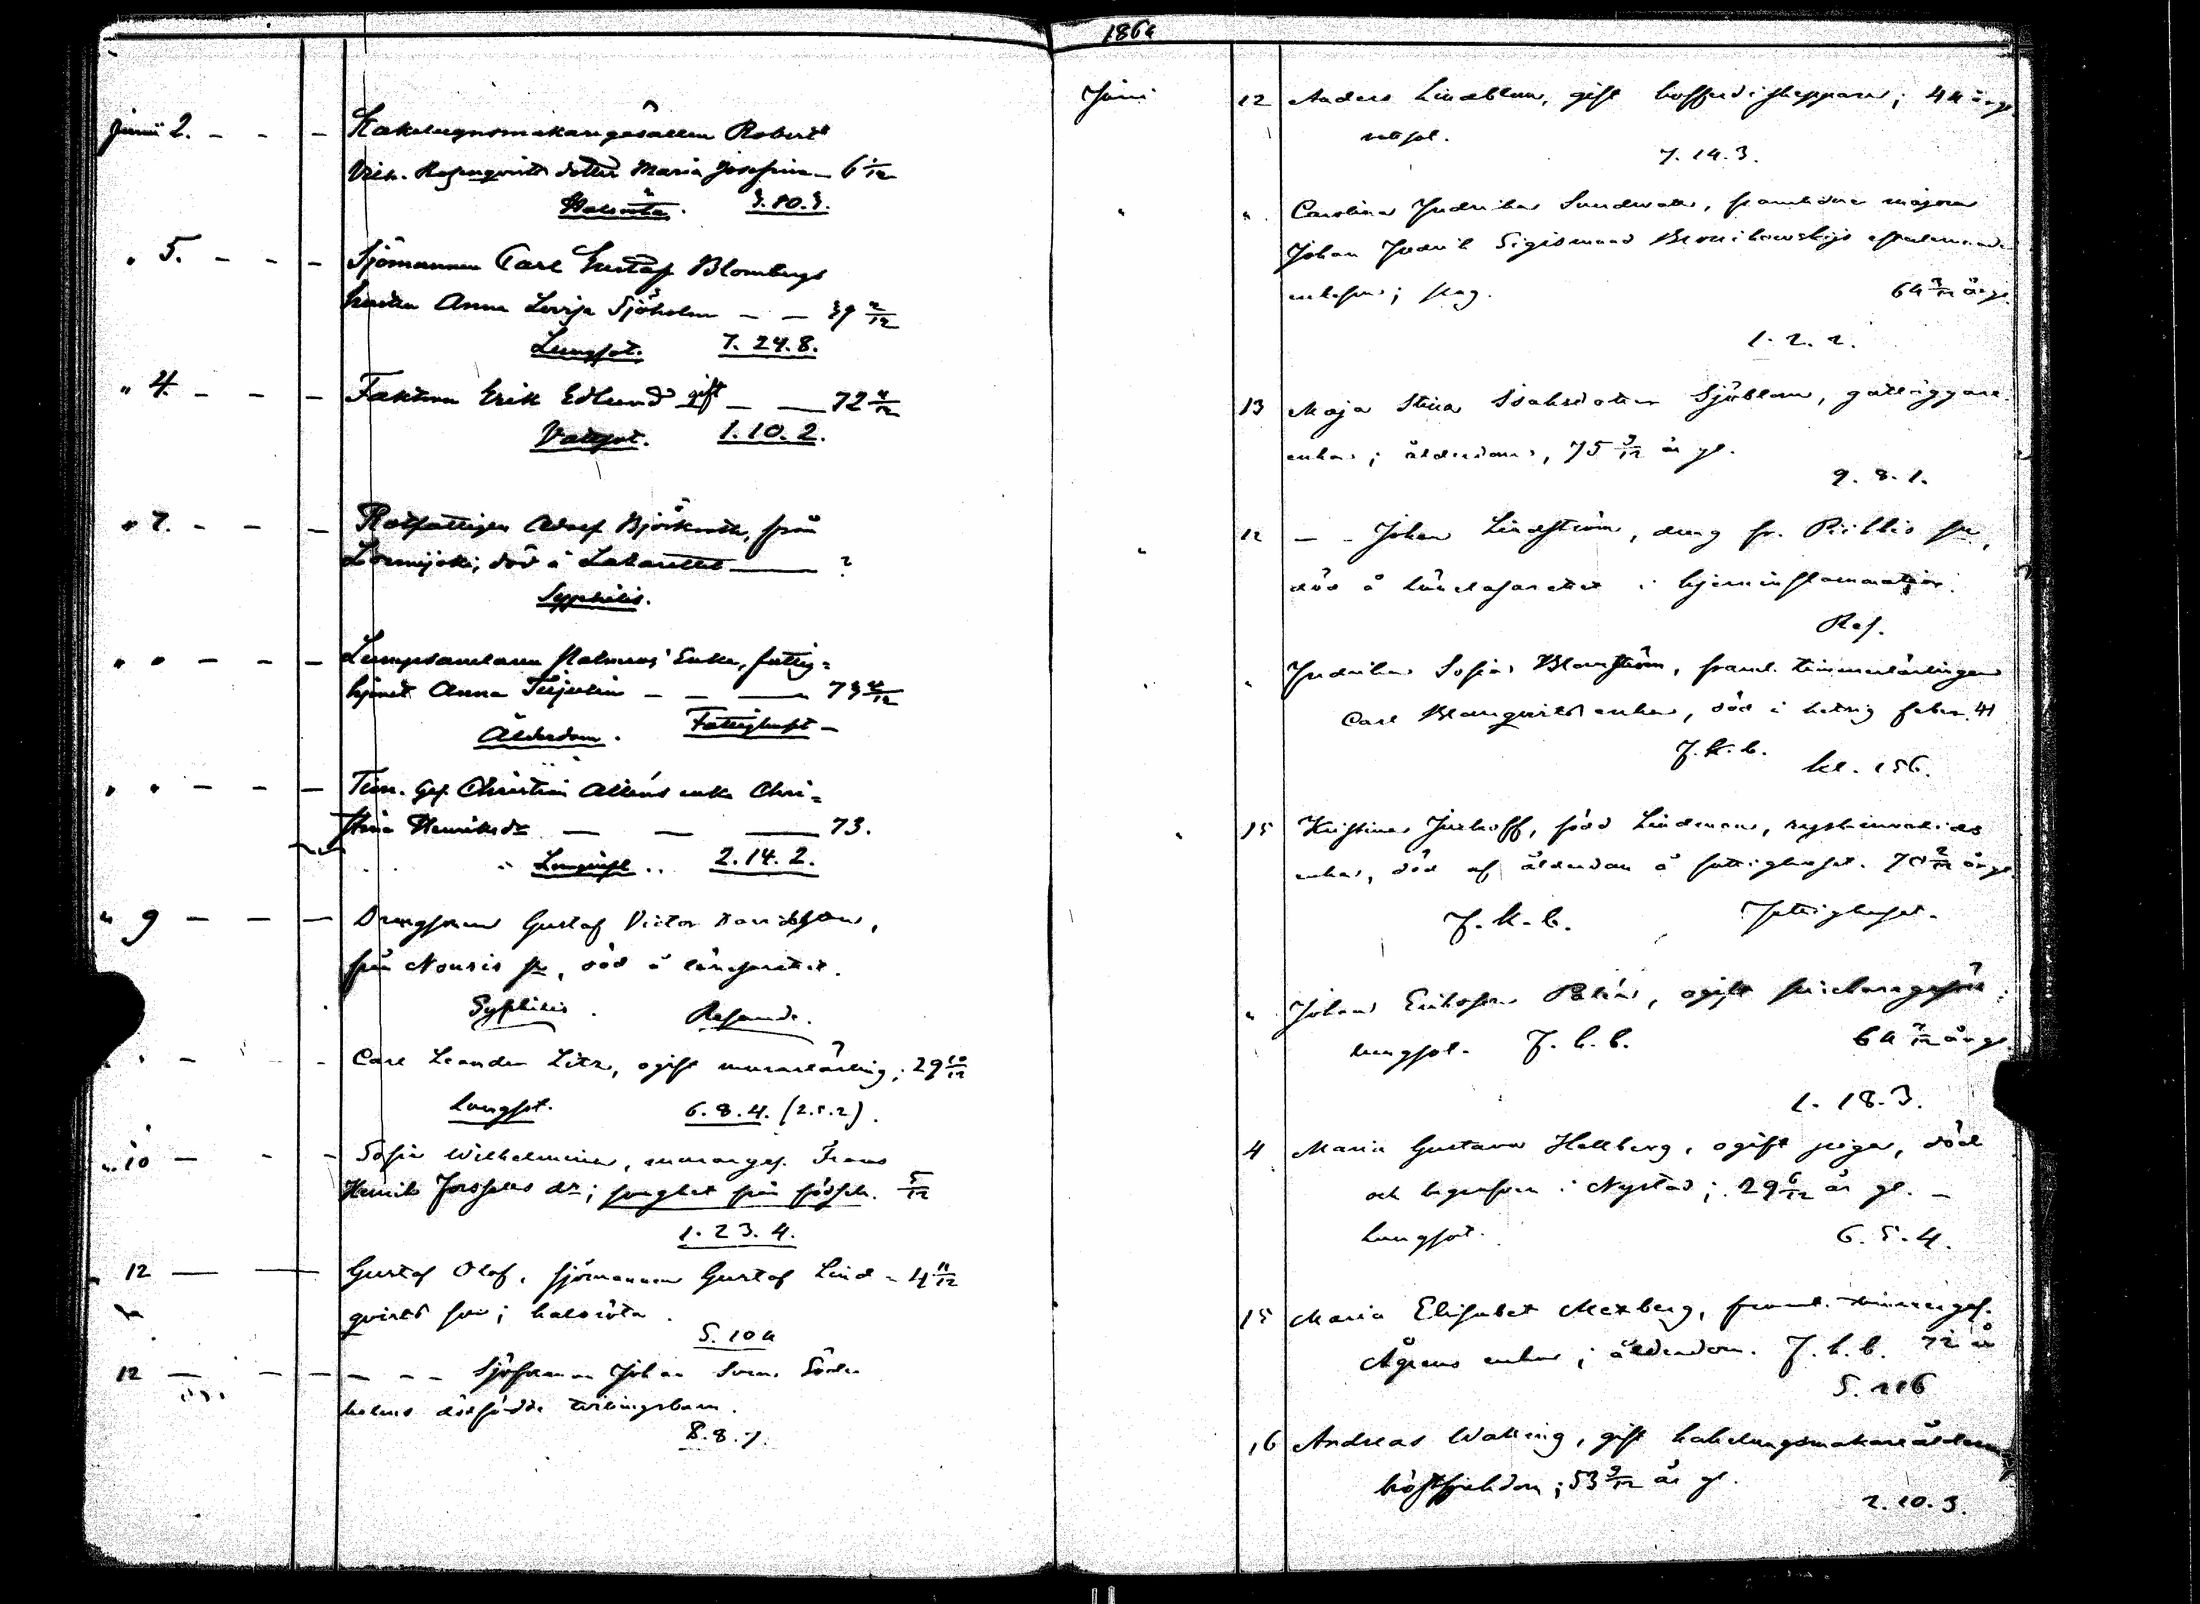 Junii 2. - - - Kakelugnsmakaregesällen Robert
Vilh. Rosenqvists dotter Maria Josefina - 6 1/12
Halsröta. 3.80.3.
" 5. - - - Sjömannen Carl Gustaf Blombergs
hustru Anna Lovisa Sjöholm - - 39 2/12
Lungsot. 7. 24. 8.
" 4. - - - Faktorn Erik Edlund gift - - 72 4/12
Vattsot. 1. 10. 2.
" 7. - - - Rotfattigen Adolf Björkroth, från
Loimijoki; död å Lasarettet - ?
Syphilis.
" " - - - Lumpsamlaren Malmros' Enka, fattig=
hjonet Anna - - - 73 4/12
Ålderdom. Fattighuset -
" " - - - Tim. Ges. Christian Alléns enka Chri=
stina Henriksdr - - - 73.
Lunginfl. 2. 14. 2.
" 9 - - - Drengsonen Gustaf Victor Davidsson,
från Nousis sn, död å länslasarettet.
Syphilis. Resande.
" - - Carl Leander Litz, ogift murarlärling; 29 10/12
Lungsot. 6. 8. 4. (2.5.2).
" 10 - - - Sofia Wilhelmina, murargес. Frans
Henrik Forssells dr; sjuklighet från födseln. 5/12
1. 23. 4.
" 12 - - Gustaf Olof, sjömannen Gustaf Lind - 4 11/12
qvists son; halsröta.
5. 104
12 - - - - - - Sjömannen Johan Söder
holms dödfödda tvillingsbarn.
8. 8. 7.
1864
Juni 12 Anders Lindblom, gift koffardiskeppare; 44 år gl.
vattsot.
7. 14. 3.
" " Carolina Fredrika Sundvall, framlidne majoren
Johan Fredrik Sigismund Bronikowskijs efterlemnade
enkefru; slag. 64 3/12 år gl.
1. 2. 2.
13 Maja Stina Isaksdotter Sjöblom, gatläggare
enka; ålderdom, 75 3/12 år gl.
9. 8. 1.
" 12 - - Johan Lindström, dreng fr. Piikkis sn,
död å länslasarettet i hjerninflammation.
Res.
" " Fredrika Sofia Blomström, framl. timmerlärlingen
Carl Blomqvists enka, död i hetsig feber. 41
F. k. b. kl. 156.
" 15 Kristina Jerkoff, född Lindman, rysk invalids
enka, död af ålderdom å fattighuset. 70 2/12 år gl.
F. k. b. Fattighuset.
" Johan Eriksson Palén, ogift
lungsot. F. k. b. 64 7/12 år gl.
1. 18. 3.
4 Maria Gustava Hellberg, ogift piga, död
och begrafven i Nystad; 29 6/12 år gl. -
lungsot. 6. 5. 4.
15 Maria Elisabet Mexberg, framl. timmerges.
Ågrens enka; ålderdom. F. k. b. 72 år
5. 116
16 Andreas Walling, gift kakelugnsmakareålderman
bröstsjukdom; 53 9/12 år gl.
2. 10. 3.